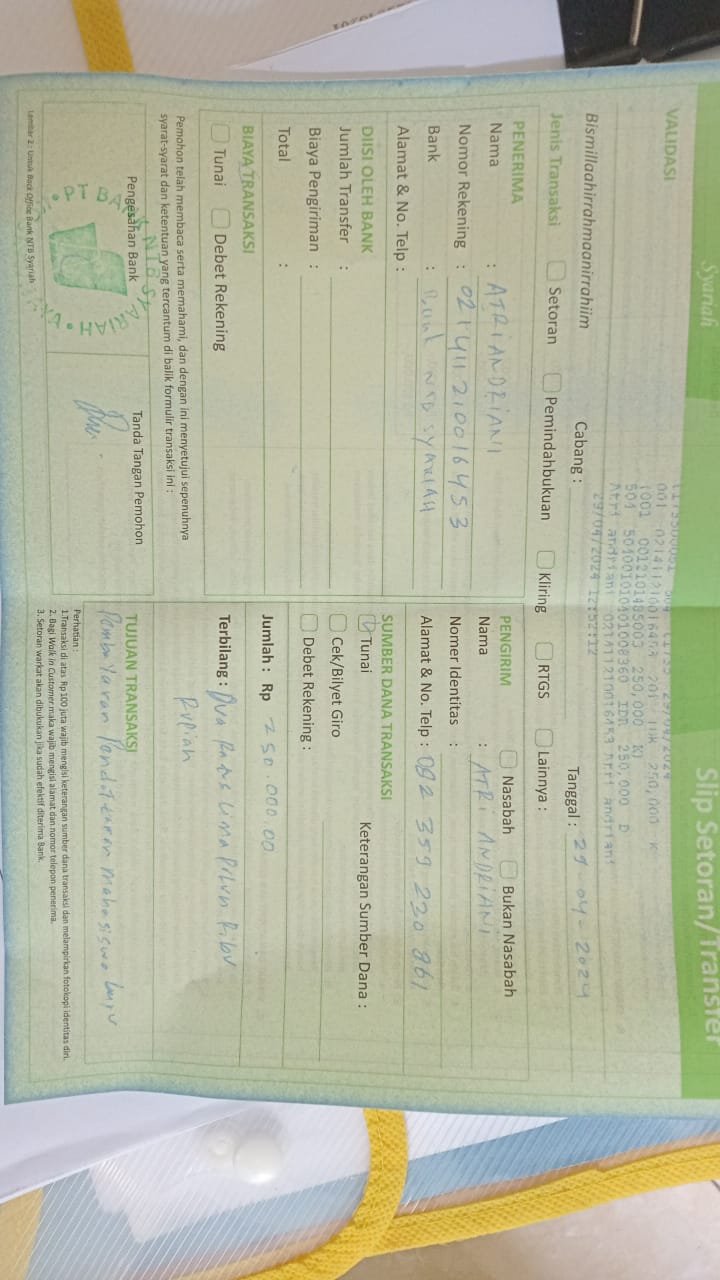 Syariah
Slip Setoran/Transfer
VALIDASI
29/04/2024
250,000 K
001 0012101485003 250,000 K)
501 501001010401008360 IDR 250,000 D
Atri andriani 0214112100016453 Atri andriani
29/04/2024 12:52:12
Bismillaahirrahmaanirrahiim
Cabang :
Tanggal : 29-04-2024
Jenis Transaksi
Setoran
Pemindahbukuan
Kliring
RTGS
Lainnya :
PENERIMA
Nama : ATRI ANDRIANI
Nomor Rekening : 0214112100016453
Bank : Bank NTB SYARIAH
Alamat & No. Telp :
PENGIRIM
Nasabah
Bukan Nasabah
Nama : ATRI ANDRIANI
Nomer Identitas :
Alamat & No. Telp : 082 359 230 861
DIISI OLEH BANK
Jumlah Transfer :
Biaya Pengiriman :
Total :
SUMBER DANA TRANSAKSI
Tunai
Keterangan Sumber Dana :
Cek/Bilyet Giro
Debet Rekening :
BIAYA TRANSAKSI
Tunai
Debet Rekening
Jumlah : Rp 250.000.00
Terbilang : Dua Ratus Lima Puluh Ribu
Rupiah
Pemohon telah membaca serta memahami, dan dengan ini menyetujui sepenuhnya
syarat-syarat dan ketentuan yang tercantum di balik formulir transaksi ini :
Pengesahan Bank
PT BANK NTB SYARIAH
Tanda Tangan Pemohon
TUJUAN TRANSAKSI
Pembayaran Pendaftaran mahasiswa baru
Perhatian :
1.Transaksi di atas Rp 100 juta wajib mengisi keterangan sumber dana transaksi dan melampirkan fotokopi identitas diri.
2. Bagi Walk in Customer maka wajib mengisi alamat dan nomor telepon penerima.
3. Setoran warkat akan dibukukan jika sudah efektif diterima Bank.
Lembar 2 : Untuk Back Office Bank NTB Syariah